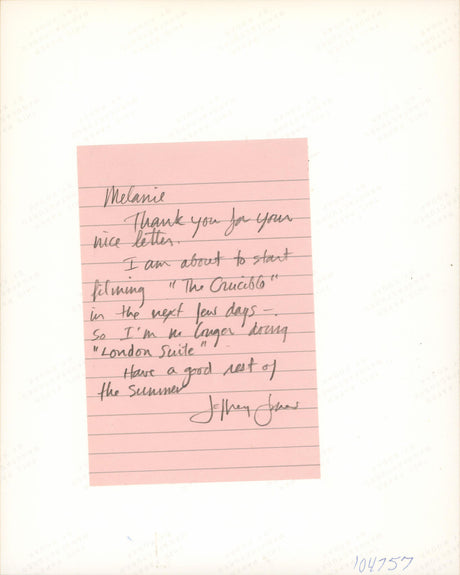 Melanie
Thank you for your
nice letter.
I am about to start
filming "The Crucible"
in the next few days –
so I'm no longer doing
"London Suite"
Have a good rest of
the summer
Jeffrey Jones
104757